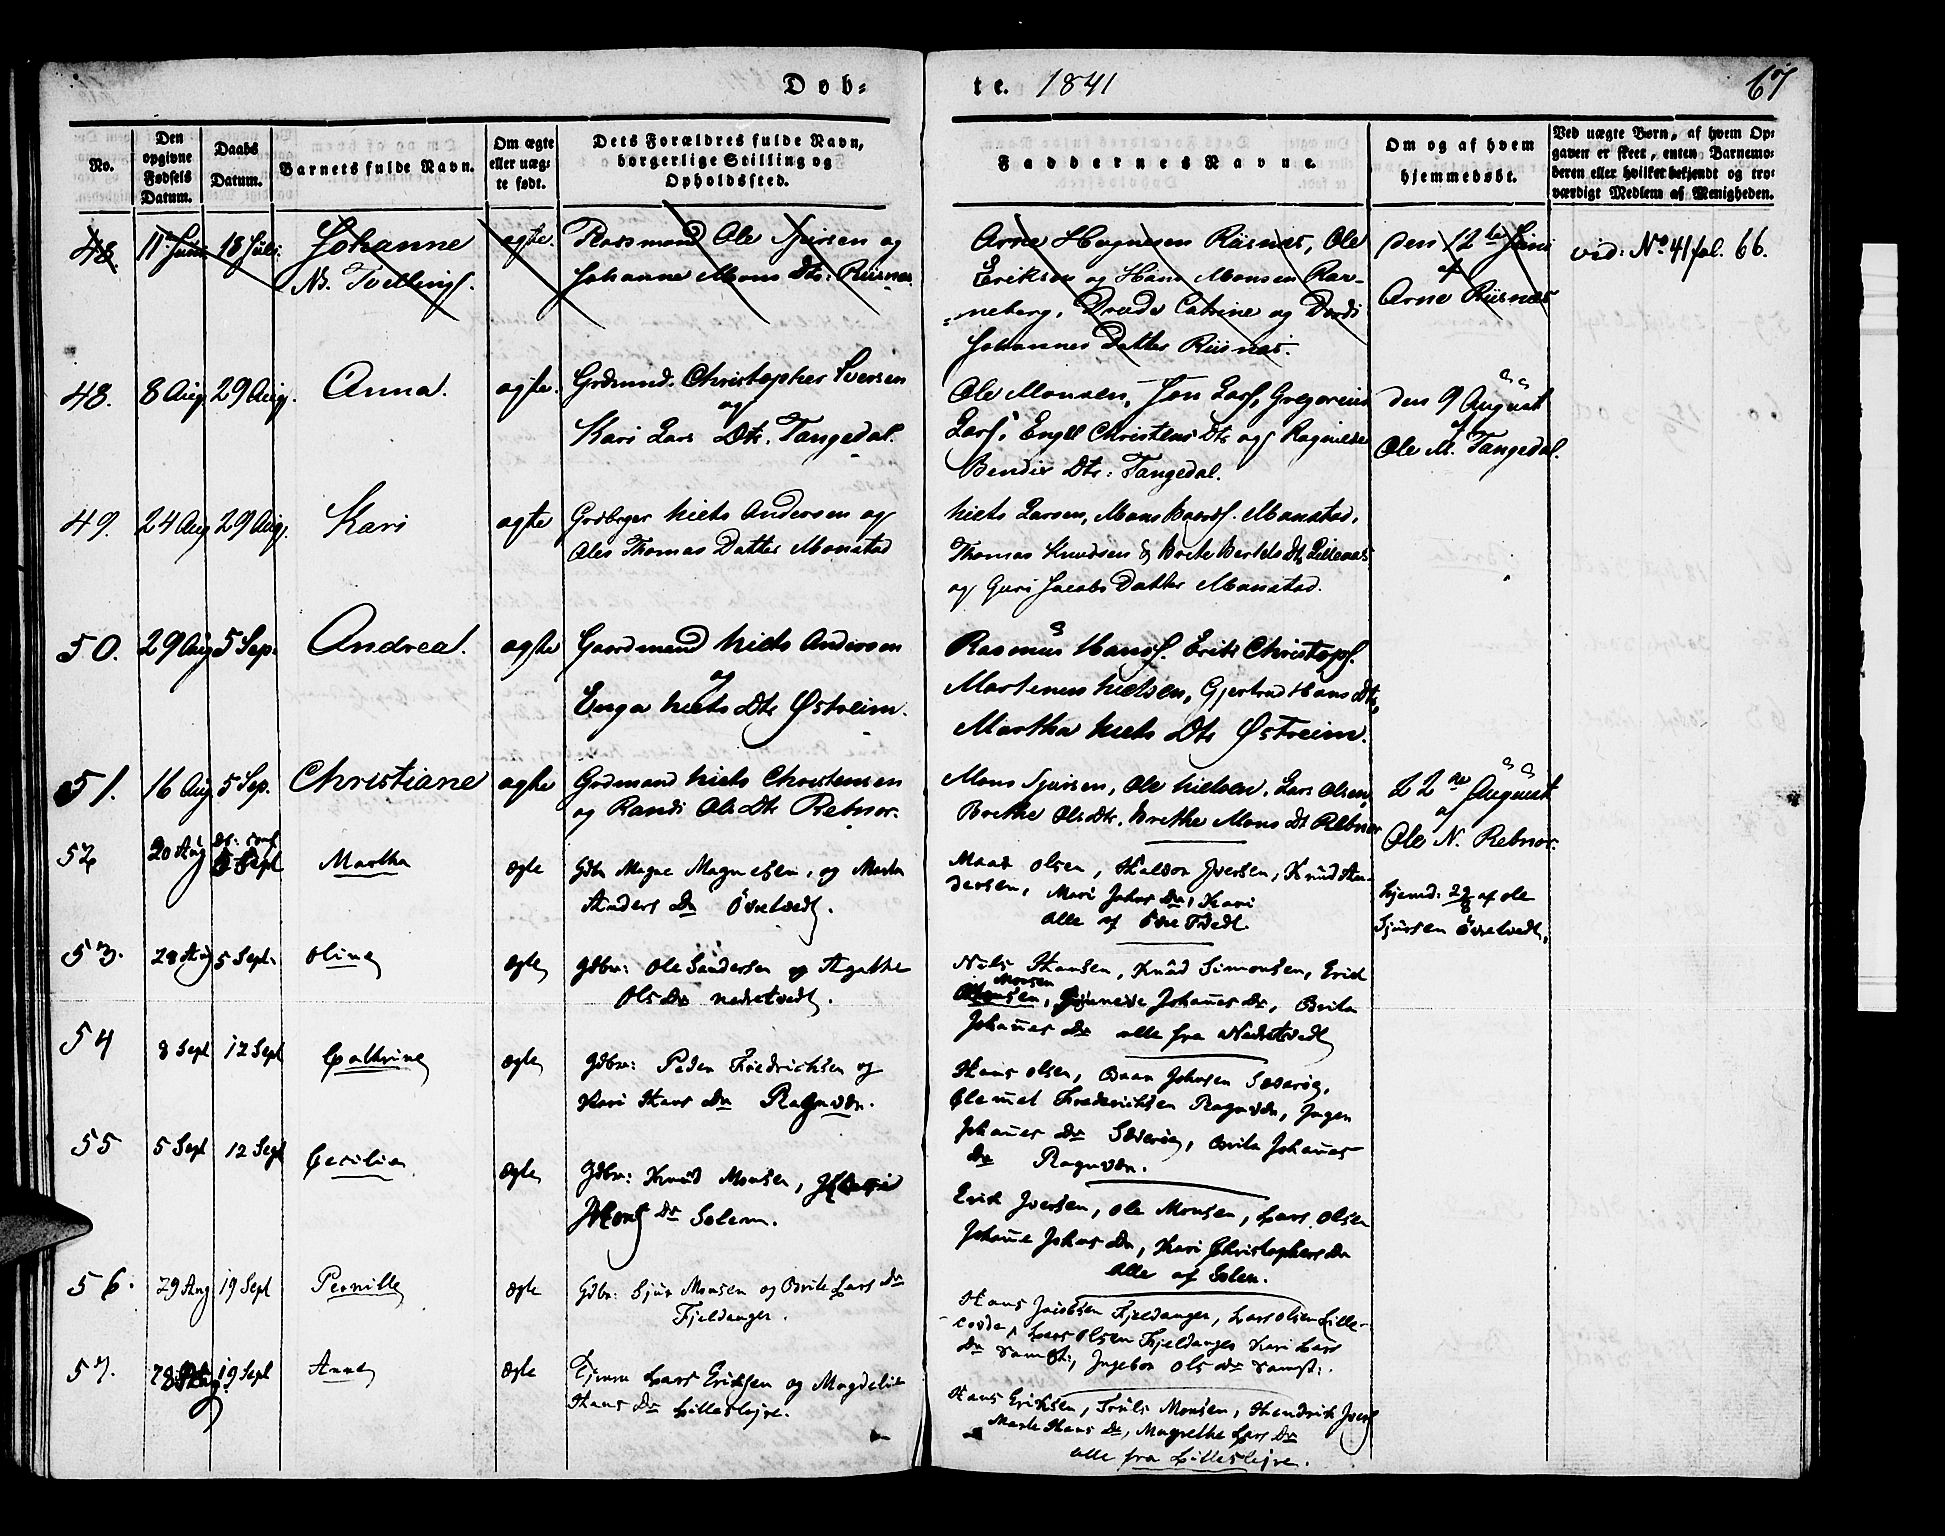 Døb-
te. 1841
67
No.
Den opgivne Fødsels Datum.
Daabs Datum.
Barnets fulde Navn.
Om ægte eller uæg- te født.
Dets Forældres fulde Navn, borgerlige Stilling og Opholdssted.
Faddernes Navne.
Om og af hvem hjemmedøbt.
Ved uægte Børn, af hvem Op-
gaven er skeet, enten Barnemo-
deren eller hvilket bekjendt og tro-
værdigt Medlem af Menigheden.
48 11 Juni 18 Juli Johanne ægte. Ole Sjursen og
Nb. Tvilling. Johanne Mons Dtr: Riisnes
Arne Magnesen Riisnes, Ole
Eriksen og Hans Monsen Rar-
neberg, Catrine og Dordi
Johannes Datter Riisnes.
den 12te Juni
af
Arne Riisnes
vid: No 41 fol. 66.
48. 8 Aug. 29 Aug. Anna. ægte. Grdmand. Christopher Iversen
og
Kari Lars Dtr. Tangedal.
Ole Monsen, Jon Lars., Gregorius
Lars., Engel Christens Dtr og Ragnilde
Bendix Dtr: Tangedal.
den 9 August
af
Ole M. Tangedal.
49. 24 Aug 29 Aug. Kari ægte Niels Andersen og
Ales Thomas Datter Monstad
Niels Larsen, Mons Monstad,
Thomas Knudsen & Brite Bertels Dtr Lillenæs
og Guri Jacobs Datter Monstad.
50. 29 Aug 5 Sep. Andrea. ægte Gaardmand Niels Andersen
og
Enga Niels Dtr Østreim.
Rasmus Hans. Erik Christoph.
Martenus Nielsen, Gjertrud Hans Dtr,
Martha Niels Dtr Østreim.
51. 16 Aug 5 Sep. Christiane ægte Grdmand Niels Christensen
og Randi Ols Dtr Rebnor.
Mons Sjursen, Ole Nielsen, Lars Olsen,
Brethe Ols dtr. Brethe Mons Dt Rebnor
22de August
af
Ole N. Rebnor.
52 20 Aug 5 Sept Martha ægte Gdbr Magne Magnesen, og Marta
Anders Dr Övretvedt.
Mads Olsen, Haldor Iversen, Knud An-
dersen, Mari Johns Dr, Kari
alle af Övre Tvedt.
hjemd: 22/8 af Ole
Sjursen Övretvedt.
53. 28 Aug 5 Sept. Oline ægte Gdbr: Ole Sandersen og Agathe
Ols Dr Nedretvedt.
Nils Hansen, Knud Simonsen, Erick
Monsen
Johannes Dr, Brita
Johannes Dr alle fra Nedretvedt
54 8 Sept 12 Sept Cathrine ægte Gdbr: Peder Friedrichsen og
Kari Hans Dr Ragnvær.
Hans Olsen, Johnsen Sæverøy,
Clemet Frederichsen Ragnvær, Inger
Johannes Dr Sæverøy, Brita Johannes
Dr Ragnvær.
55 5 Sept 12 Sept Cecilia ægte Gdbr: Knud Monsen,
Dr Solem.
Erick Iversen, Ole Monsen, Lars Olsen
Johanne Johns Dr, Kari Christophers Dr
alle af Solem.
56. 29 Aug 19 Sept Pernille ægte Gdbr: Sjur Monsen og Brite Lars Dr
Fjeldanger.
Hans Jacobsen Fjeldanger, Lars Olsen Lille-
Lars Olsen Fjeldanger Kari Lars
Dr samst:, Ingebor Ols Dr samst:.
57. 28 Aug. 19 Sept Anne ægte Lars Eriksen og Magdeli
Hans Dr Lilleslejre.
Hans Eriksen, Truls Monsen, Hendrik Ivers
Marte Hans Dr, Magrethe Lars Dr
alle fra Lilleslejre.